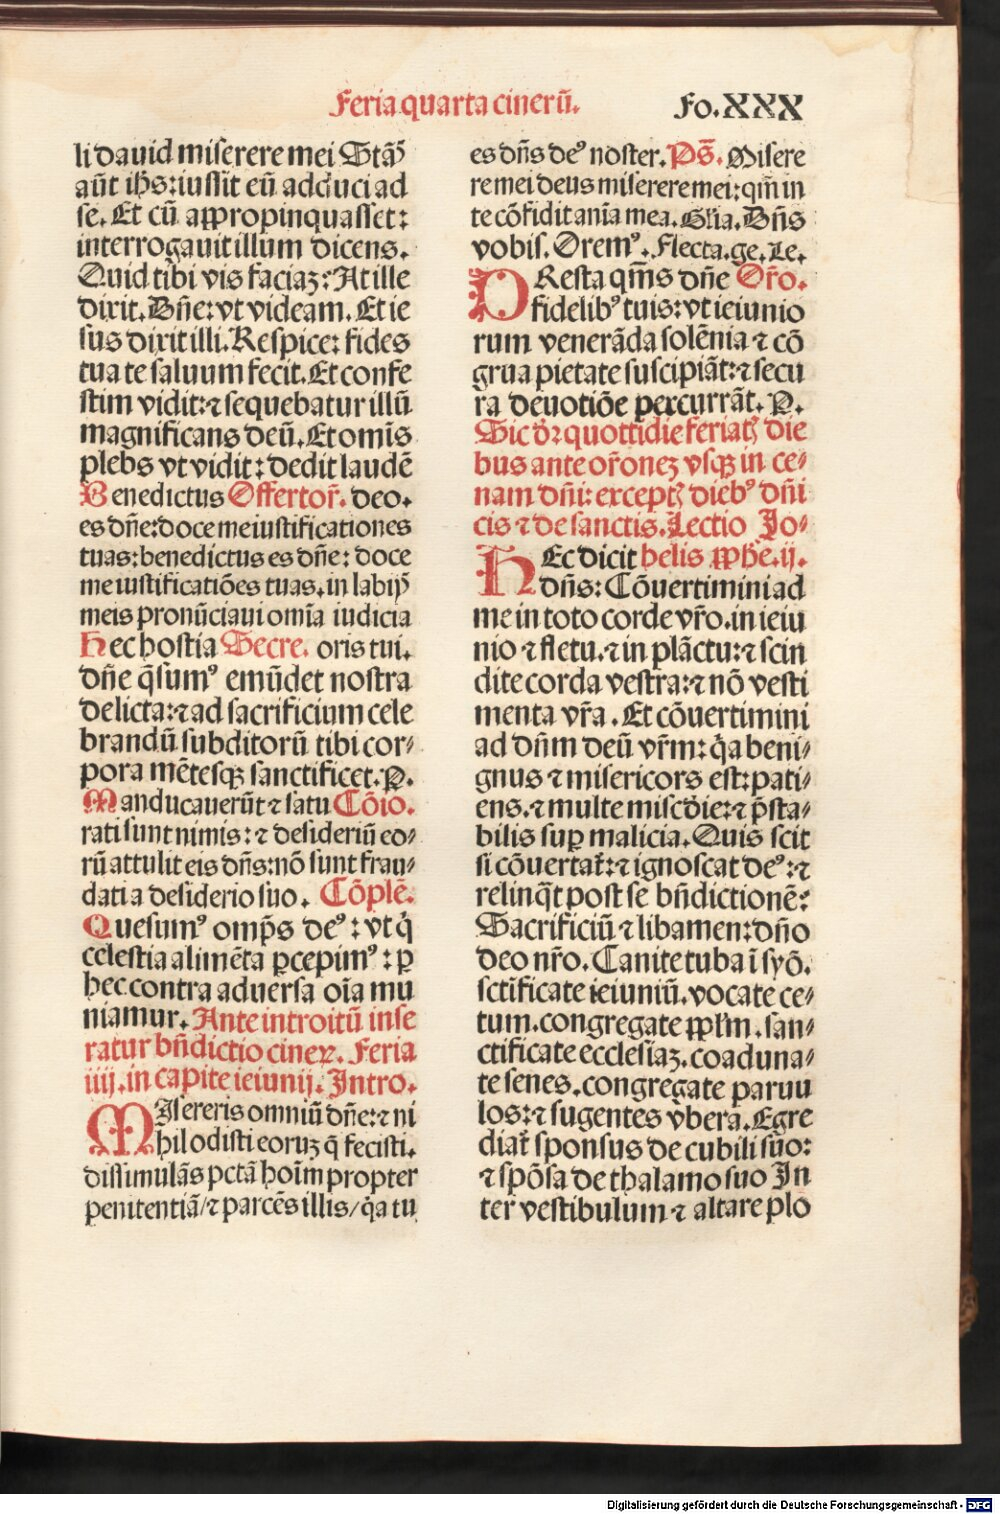 Feria quarta cinerū. Fo.XXX
li dauid miserere mei Stās
aūt ihs: iussit eū adduci ad
se. Et cū appropinquasset:
interrogauit illum dicens.
Quid tibi vis faciaz: At ille
dixit. Dñe: vt videam. Et ie
sus dixit illi. Respice: fides
tua te saluum fecit. Et confe
stim vidit: ⁊ sequebatur illū
magnificans deū. Et om̄is
plebs vt vidit: dedit laudē
Benedictus Offertor̄. deo.
es dñe: doce me iustificationes
tuas: benedictus es dñe: doce
me iustificatiōes tuas. in labijs
meis pronūciaui om̄ia iudicia
Hec hostia Secre. oris tui.
dñe q̄sumꝰ emūdet nostra
delicta: ⁊ ad sacrificium cele
brandū subditorū tibi cor⸗
pora mētesqꝫ sanctificet. P.
Manducauerūt ⁊ satu Cōio.
rati sunt nimis: ⁊ desideriū eo⸗
rū attulit eis dñs: nō sunt frau⸗
dati a desiderio suo. Cōplē.
Quesumꝰ omp̄s deꝰ: vt q̇
celestia alimēta ꝑcepimꝰ: ꝑ
hec contra aduersa oīa mu
niamur. Ante introitū inse
ratur bn̄dictio cineꝝ. Feria
iiij. in capite ieiunij. Intro.
MIsereris omniū dñe: ⁊ ni
hil odisti eoruꝫ q̄ fecisti.
dissimulās pctā hoīm propter
penitentiā/ ⁊ parcēs illis/ q̇a tu
es dñs deꝰ noster. Ps̄. Misere
re mei deus miserere mei: qm̄ in
te cōfidit anīa mea. Gl̄ia. Dñs
vobis. Oremꝰ. Flecta. ge. Le.
PResta qm̄s dñe Or̄o.
fidelibꝰ tuis: vt ieiunio
rum venerāda solēnia ⁊ cō
grua pietate suscipiāt: ⁊ secu
ra deuotiōe percurrāt. P.
Sic dꝛ quottidie feriatꝭ die
bus ante or̄oneꝫ vsqꝫ in ce⸗
nam dñi: exceptꝭ diebꝰ dñi
cis ⁊ de sanctis. Lectio Jo⸗
HEc dicit helis ꝓphe. ij.
dñs: Cōuertimini ad
me in toto corde vr̄o. in ieiu
nio ⁊ fletu. ⁊ in plāctu: ⁊ scin
dite corda vestra: ⁊ nō vesti
menta vr̄a. Et cōuertimini
ad dn̄m deū vr̄m: q̇a beni⸗
gnus ⁊ misericors est: pati⸗
ens. ⁊ multe misc̄die: ⁊ p̄sta⸗
bilis suꝑ malicia. Quis scit
si cōuertat̄: ⁊ ignoscat deꝰ: ⁊
relinq̄t post se bn̄dictionē:
Sacrificiū ⁊ libamen: dn̄o
deo nr̄o. Canite tuba ī syō.
sctīficate ieiuniū. vocate ce⸗
tum. congregate ppl̄m. san⸗
ctificate ecclesiaꝫ. coaduna⸗
te senes. congregate paruu
los: ⁊ sugentes vbera. Egre
diat̄ sponsus de cubili suo:
⁊ spōsa de thalamo suo In
ter vestibulum ⁊ altare plo
Digitalisierung gefördert durch die Deutsche Forschungsgemeinschaft - DFG